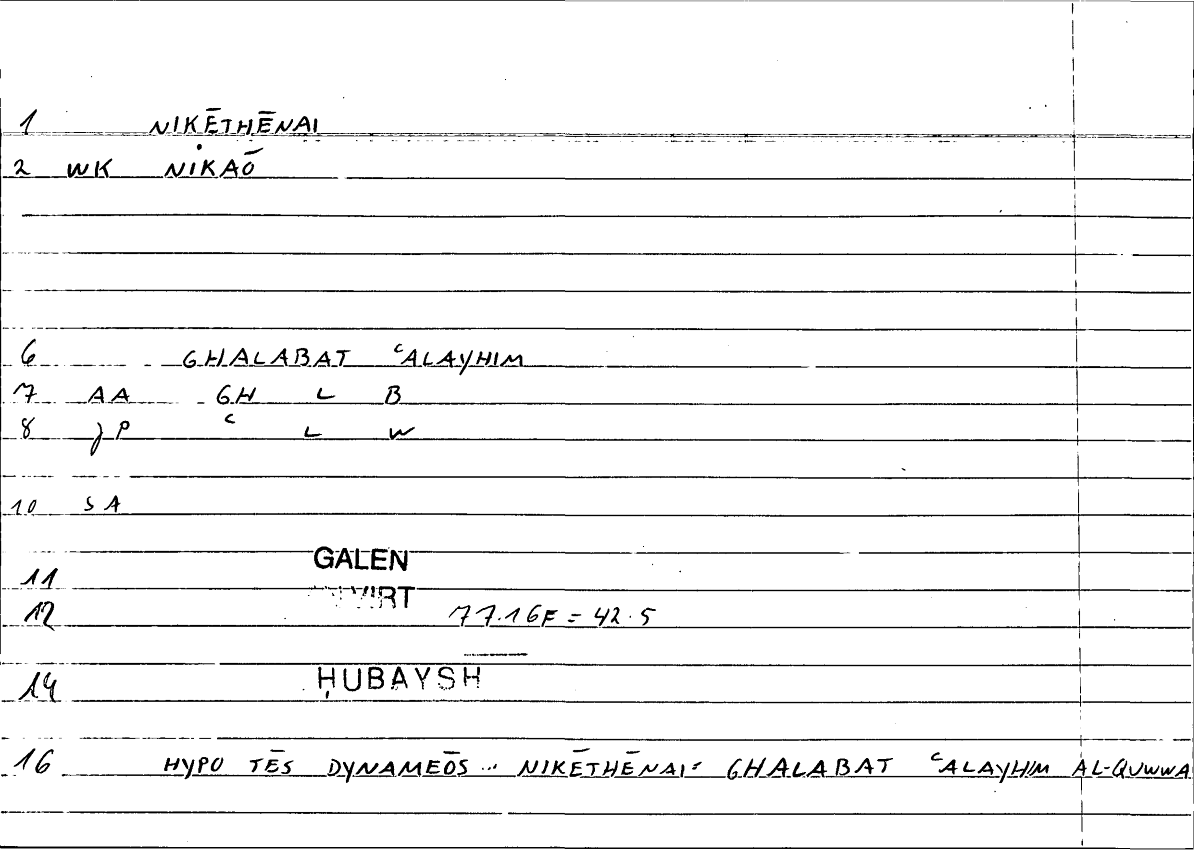 1 NIKĒTHĒNAI
2 WK NIKAŌ
6 GHALABAT ᶜALAYHIM
7 AA GH L B
8 JP ᶜ L W
10 SA
GALEN
11
VIRT
12 77.16F = 42.5
14 ḤUBAYSH
16 HYPO TĒS DYNAMEŌS ... NIKĒTHĒNAI = GHALABAT ᶜALAYHIM AL-QUWWA